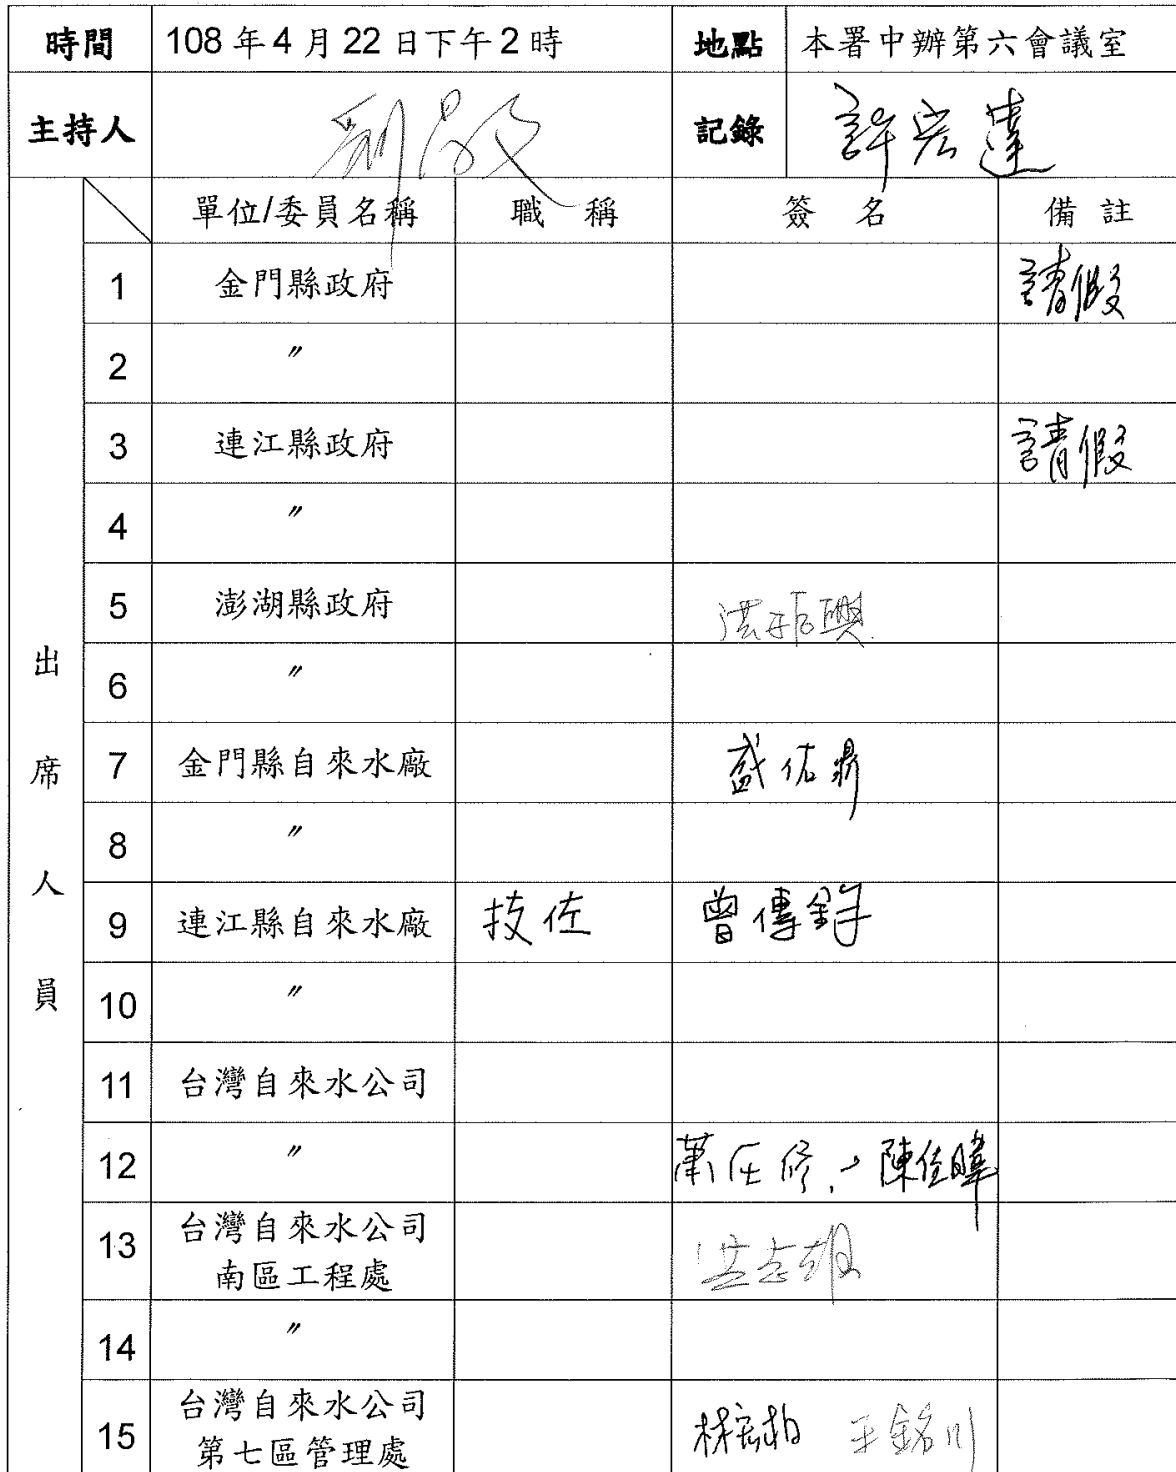 時間 108年4月22日下午2時 地點 本署中辦第六會議室
主持人 記錄 許宏達
單位/委員名稱 職稱 簽名 備註
出席人員
1 金門縣政府 請假
2 〃
3 連江縣政府 請假
4 〃
5 澎湖縣政府 洪振興
6 〃
7 金門縣自來水廠 盛佑鼎
8 〃
9 連江縣自來水廠 技佐 曾傳
10 〃
11 台灣自來水公司
12 〃 陳佳暐
13 台灣自來水公司
南區工程處 洪志雄
14 〃
15 台灣自來水公司
第七區管理處 林宏柏 王銘川